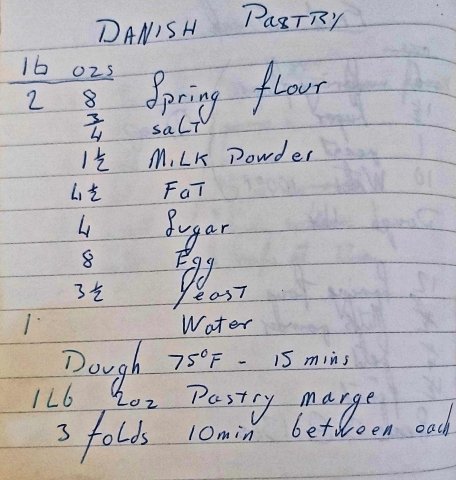 DANISH PASTRY
lb ozs
2 8 Spring flour
3/4 SALT
1 1/2 MILK Powder
4 1/2 FAT
4 Sugar
8 Egg
3 1/2 Yeast
1 Water
Dough 75°F - 15 mins
1Lb 2oz Pastry marge
3 folds 10min between each